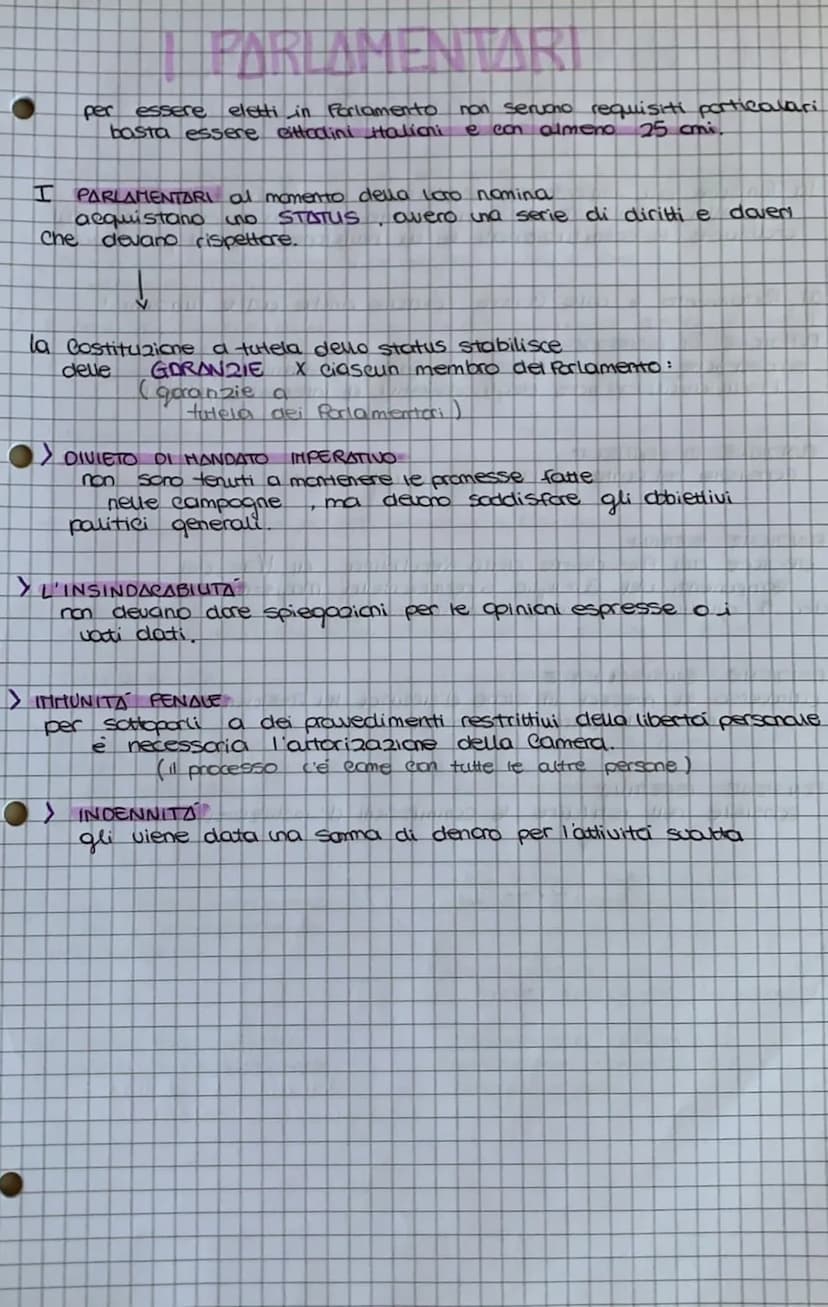 I PARLAMENTARI
per essere eletti in Parlamento non servono requisiti particolari
basta essere cittadini italiani e con almeno 25 anni.
I PARLAMENTARI al momento della loro nomina
acquistano uno STATUS, ovvero una serie di diritti e doveri
che devono rispettare.
↓
la Costituzione a tutela dello status stabilisce
delle GARANZIE x ciascun membro del Parlamento:
(garanzie a
tutela dei Parlamentari)
> DIVIETO DI MANDATO IMPERATIVO
non sono tenuti a mantenere le promesse fatte
nelle campagne, ma devono soddisfare gli obbiettivi
politici generali.
> L'INSINDACABILITÀ
non devono dare spiegazioni per le opinioni espresse o i
voti dati.
> IMMUNITÀ PENALE
per sottoporli a dei provedimenti restrittivi della libertà personale
è necessaria l'attorizazione della Camera.
(il processo c'è come con tutte le altre persone)
> INDENNITÀ
gli viene data una somma di denaro per l'attività svolta